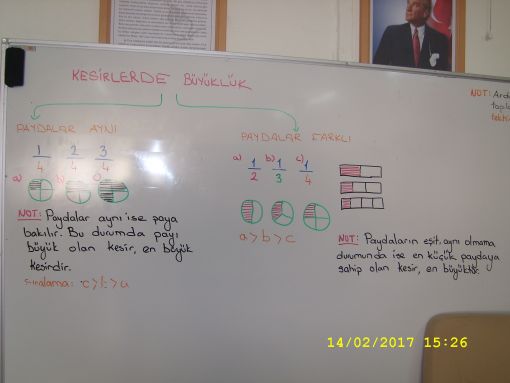 KESİRLERDE BÜYÜKLÜK
PAYDALAR AYNI
1/4 2/4 3/4
a) b) c)
NOT: Paydalar aynı ise paya
bakılır. Bu durumda payı
büyük olan kesir, en büyük
kesirdir.
Sıralama: c > b > a
PAYDALAR FARKLI
a) 1/2 b) 1/3 c) 1/4
a > b > c
NOT: Paydaların eşit, aynı olmama
durumunda ise en küçük paydaya
sahip olan kesir, en büyüktür.
NOT: Ard
topla
14/02/2017 15:26